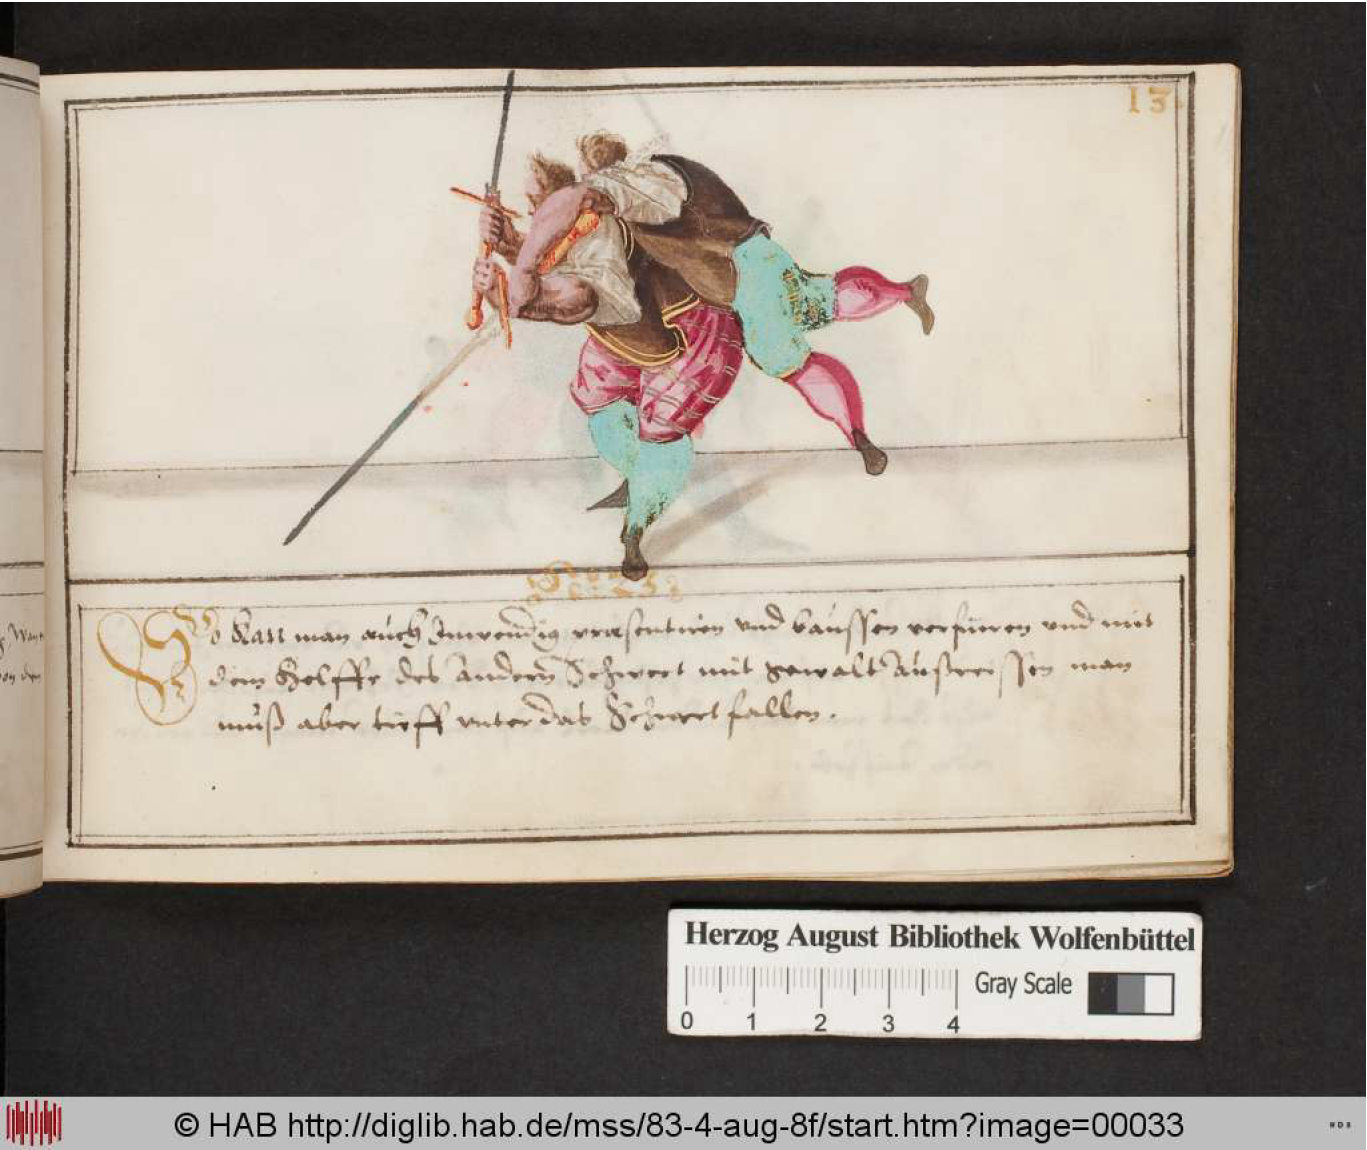 13.
No: 23.
So Kan man auch Inwendig præsentiren vnd baussen verfüren vnd mit
dem Helffte des andern Schwert mit gewalt Außreissen man
muß aber tieff vnter das Schwert fallen.
Herzog August Bibliothek Wolfenbüttel
Gray Scale
0 1 2 3 4
© HAB http://diglib.hab.de/mss/83-4-aug-8f/start.htm?image=00033